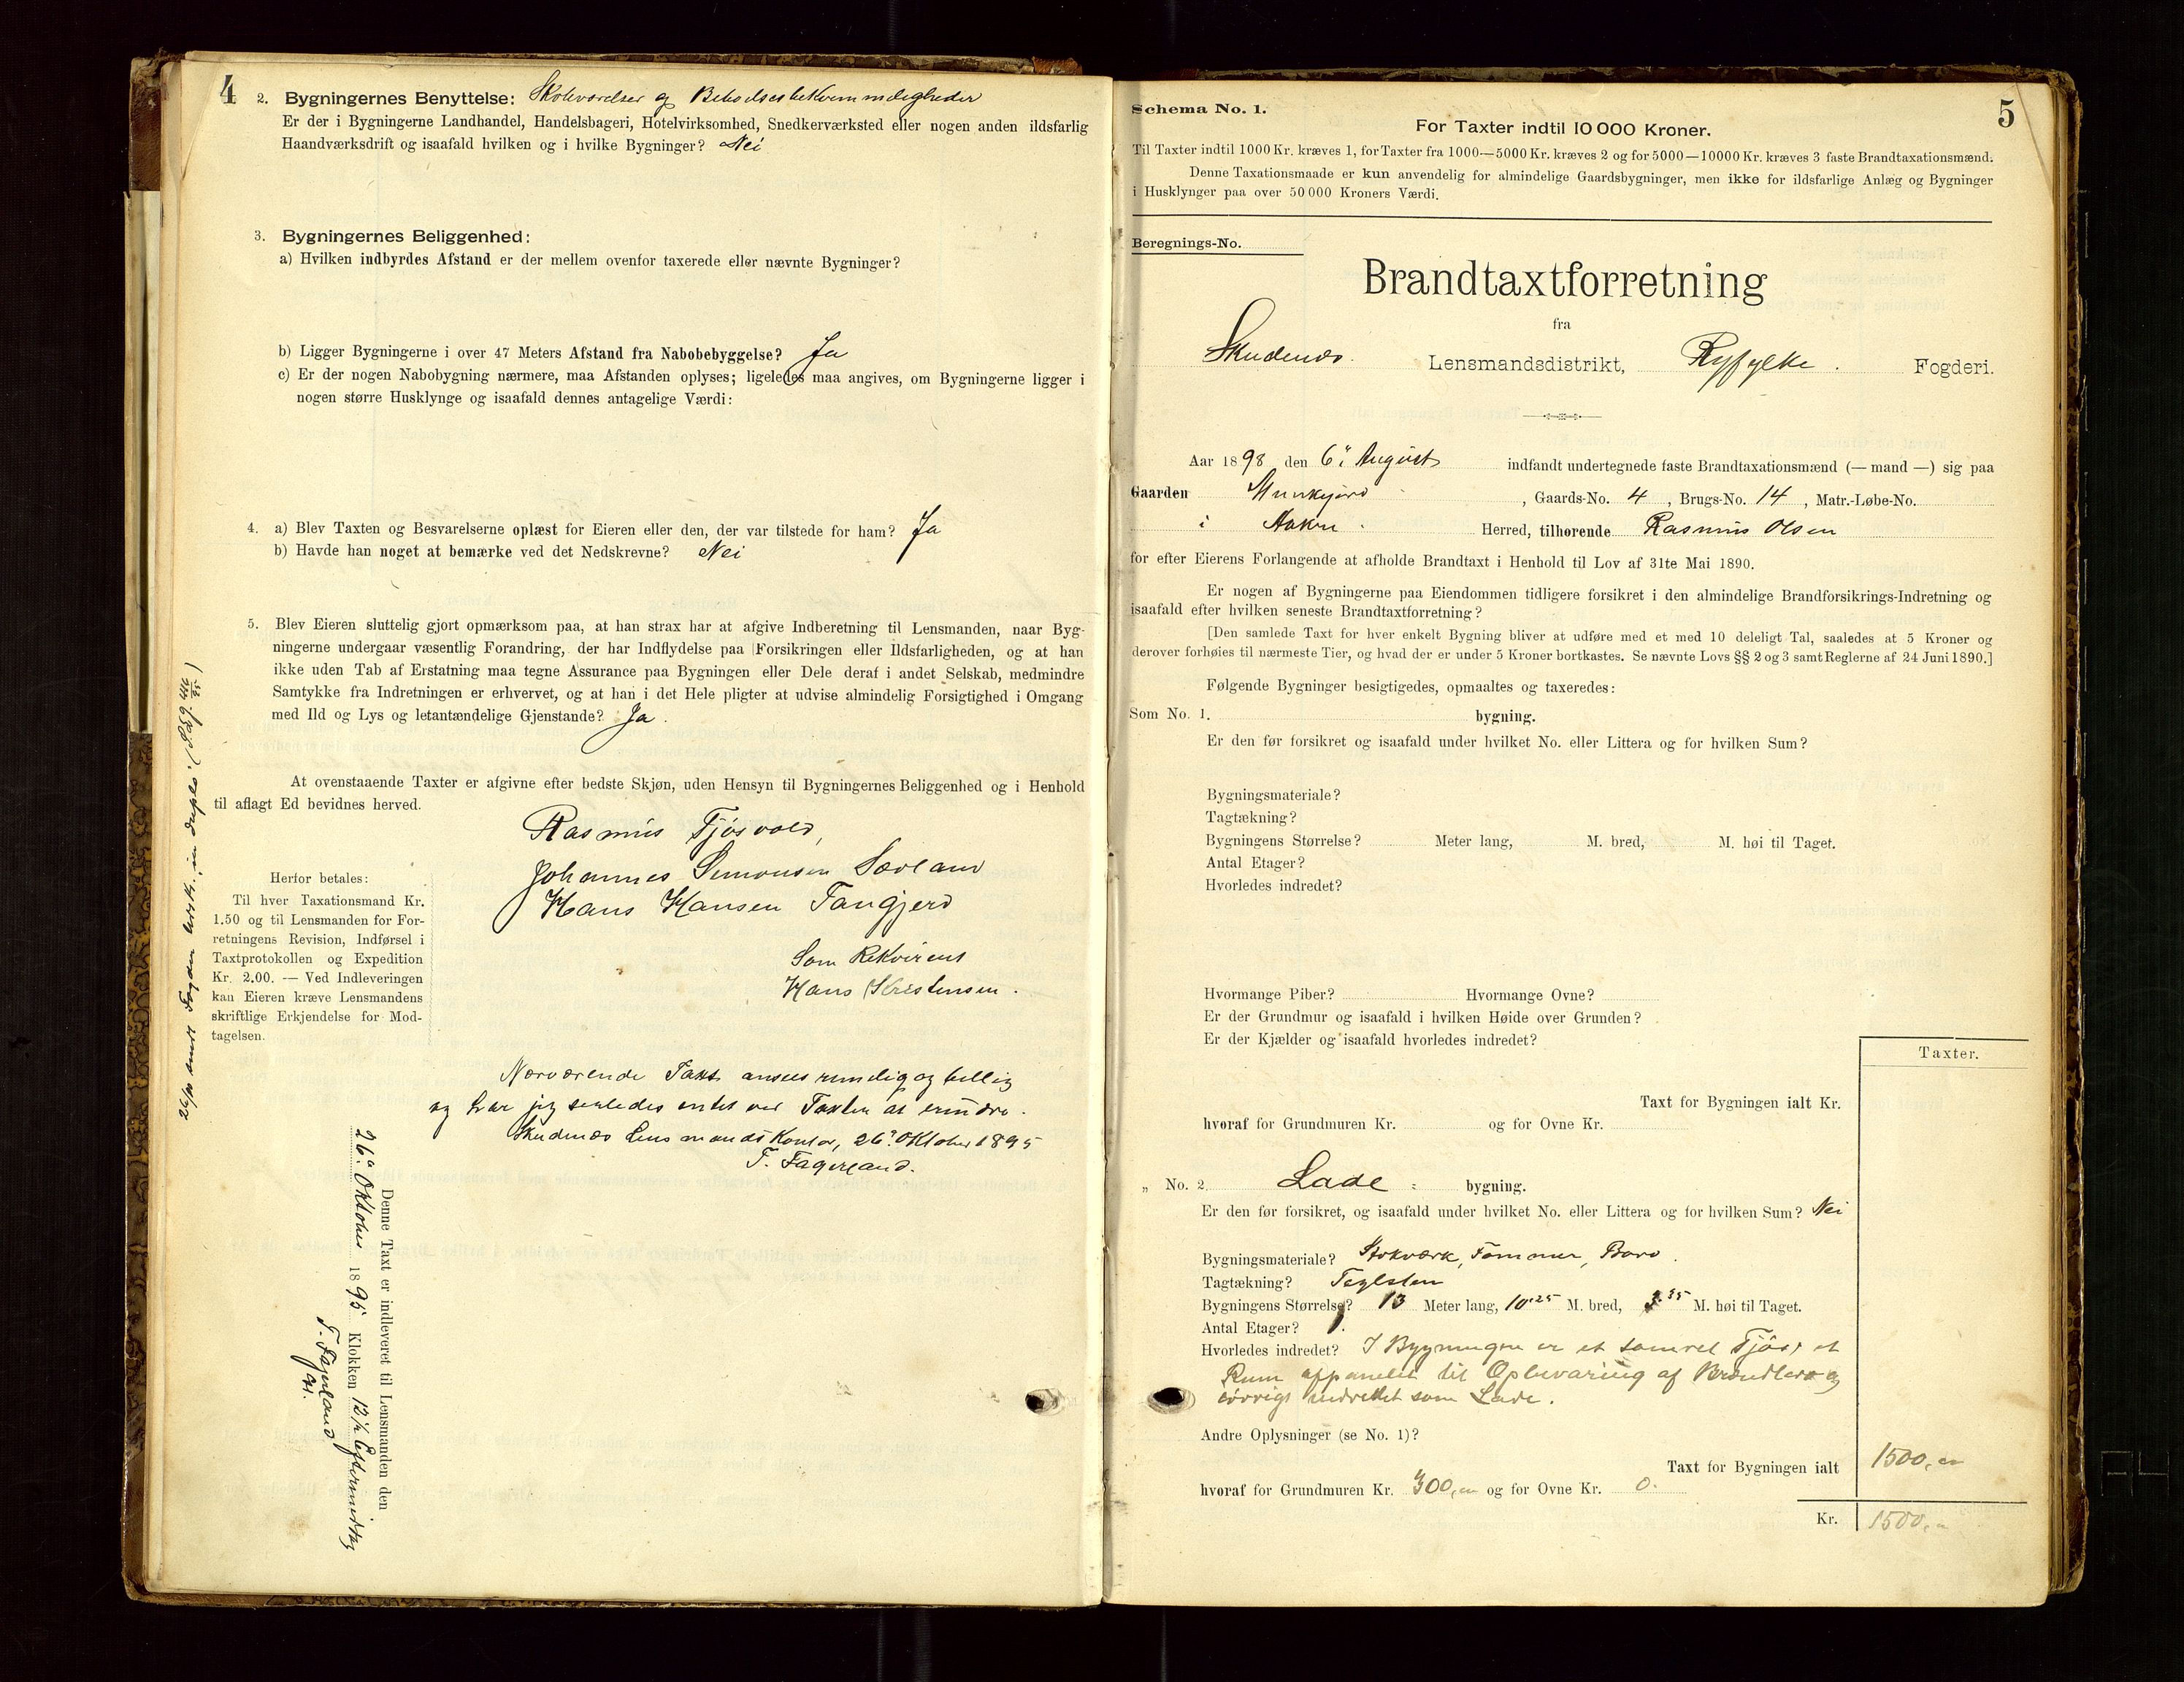 4
2. Bygningernes Benyttelse: Skoleværelser og Beboelsesbekvemmeligheder
Er der i Bygningerne Landhandel, Handelsbageri, Hotelvirksomhed, Snedkerværksted eller nogen anden ildsfarlig
Haandværksdrift og isaafald hvilken og i hvilke Bygninger? Nei
3. Bygningernes Beliggenhed:
a) Hvilken indbyrdes Afstand er der mellem ovenfor taxerede eller nævnte Bygninger?
b) Ligger Bygningerne i over 47 Meters Afstand fra Nabobebyggelse? Ja
c) Er der nogen Nabobygning nærmere, maa Afstanden oplyses; ligeledes maa angives, om Bygningerne ligger i
nogen større Husklynge og isaafald dennes antagelige Værdi:
4. a) Blev Taxten og Besvarelserne oplæst for Eieren eller den, der var tilstede for ham? Ja
b) Havde han noget at bemærke ved det Nedskrevne? Nei
5. Blev Eieren sluttelig gjort opmærksom paa, at han strax har at afgive Indberetning til Lensmanden, naar Byg-
ningerne undergaar væsentlig Forandring, der har Indflydelse paa Forsikringen eller Ildsfarligheden, og at han
ikke uden Tab af Erstatning maa tegne Assurance paa Bygningen eller Dele deraf i andet Selskab, medmindre
Samtykke fra Indretningen er erhvervet, og at han i det Hele pligter at udvise almindelig Forsigtighed i Omgang
med Ild og Lys og letantændelige Gjenstande? Ja.
At ovenstaaende Taxter er afgivne efter bedste Skjøn, uden Hensyn til Bygningernes Beliggenhed og i Henhold
til aflagt Ed bevidnes herved.
Rasmus Tjøsvold,
Johannes Simonsen Sævland
Hans Hansen Fangjerd
Som Rekvirent
Hans Kristensen.
Herfor betales:
Til hver Taxationsmand Kr.
1.50 og til Lensmanden for For-
retningens Revision, Indførsel i
Taxtprotokollen og Expedition
Kr. 2.00. — Ved Indleveringen
kan Eieren kræve Lensmandens
skriftlige Erkjendelse for Mod-
tagelsen.
Nærværende Taxt ansees rimelig og billig
og har jeg saaledes intet ved Taxten at erindre.
Skudenæs Lensmandskontor, 26. Oktober 1895
T. Fagerland.
Denne Taxt er indleveret til Lensmanden den
26. Oktober 1895 Klokken 12½ Eftermiddag
T. Fagerland
5
Schema No. 1.
For Taxter indtil 10 000 Kroner.
Til Taxter indtil 1000 Kr. kræves 1, for Taxter fra 1000—5000 Kr. kræves 2 og for 5000—10000 Kr. kræves 3 faste Brandtaxationsmænd.
Denne Taxationsmaade er kun anvendelig for almindelige Gaardsbygninger, men ikke for ildsfarlige Anlæg og Bygninger
i Husklynger paa over 50 000 Kroners Værdi.
Beregnings-No.
Brandtaxtforretning
fra
Skudenæs Lensmandsdistrikt, Ryfylke. Fogderi.
Aar 1898 den 6. August indfandt undertegnede faste Brandtaxationsmænd (— mand —) sig paa
Gaarden , Gaards-No. 4, Brugs-No. 14, Matr.-Løbe-No.
i Aakre Herred, tilhørende Rasmus Olsen
for efter Eierens Forlangende at afholde Brandtaxt i Henhold til Lov af 31te Mai 1890.
Er nogen af Bygningerne paa Eiendommen tidligere forsikret i den almindelige Brandforsikrings-Indretning og
isaafald efter hvilken seneste Brandtaxtforretning?
[Den samlede Taxt for hver enkelt Bygning bliver at udføre med et med 10 deleligt Tal, saaledes at 5 Kroner og
derover forhøies til nærmeste Tier, og hvad der er under 5 Kroner bortkastes. Se nævnte Lovs §§ 2 og 3 samt Reglerne af 24 Juni 1890.]
Følgende Bygninger besigtigedes, opmaaltes og taxeredes:
Som No. 1. bygning.
Er den før forsikret og isaafald under hvilket No. eller Littera og for hvilken Sum?
Bygningsmateriale?
Tagtækning?
Bygningens Størrelse? Meter lang, M. bred, M. høi til Taget.
Antal Etager?
Hvorledes indredet?
Hvormange Piber? Hvormange Ovne?
Er der Grundmur og isaafald i hvilken Høide over Grunden?
Er der Kjælder og isaafald hvorledes indredet?
Taxter.
Taxt for Bygningen ialt Kr.
hvoraf for Grundmuren Kr. og for Ovne Kr.
„ No. 2. Lade bygning.
Er den før forsikret, og isaafald under hvilket No. eller Littera og for hvilken Sum? Nei
Bygningsmateriale? Stokværk, Tømmer, Bord.
Tagtækning? Teglsten
Bygningens Størrelse? 13 Meter lang, 10.25 M. bred, 3.35 M. høi til Taget.
Antal Etager? 1.
Hvorledes indredet? I Bygningen er et tømret Fjøs, et
Rum afpanelet til Opbevaring af Brændtorv og
iøvrigt indrettet som Lade.
Andre Oplysninger (se No. 1)?
Taxt for Bygningen ialt 1500,00
hvoraf for Grundmuren Kr. 300,00 og for Ovne Kr. 0.
Kr. 1500,00